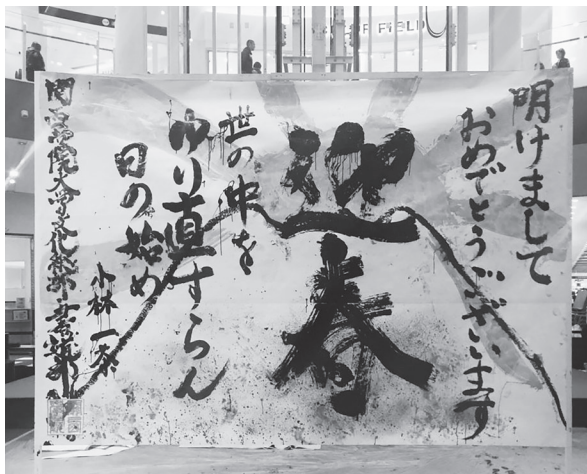 FIELD
明けまして
おめでとうございます
迎春
世の中を
ゆり直すらん
日の始め
小林一茶
関西学院大学文化総部書道部